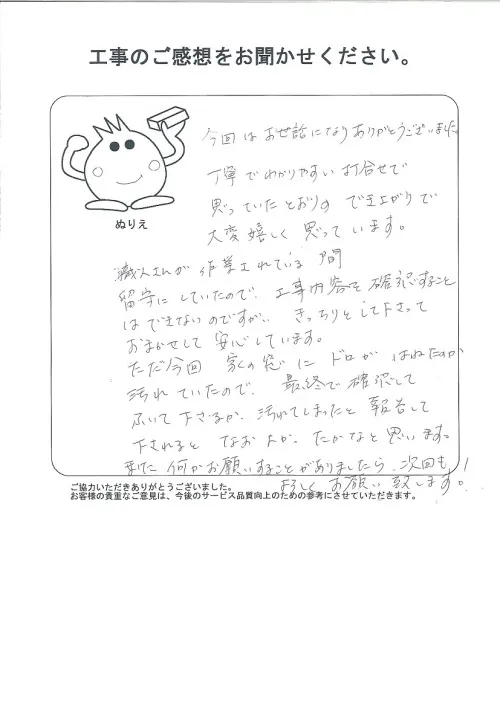 工事のご感想をお聞かせください。
今回はお世話になりありがとうございました。
丁寧でわかりやすい打合せで
思っていたとおりの でき上がりで
大変嬉しく思っています。
ぬりえ
職人さんが作業されている間
留守にしていたので、工事内容を確認すること
はできないのですが、きっちりとして下さって
おまかせして安心しています。
ただ今回 家の窓にドロがはねたのか
汚れていたので、最終で確認して
ふいて下さるか、汚れてしまったと報告して
下されると なおよかったかなと思います。
また何かお願いすることがありましたら、次回も
よろしくお願い致します。!
ご協力いただきありがとうございました。
お客様の貴重なご意見は、今後のサービス品質向上のための参考にさせていただきます。